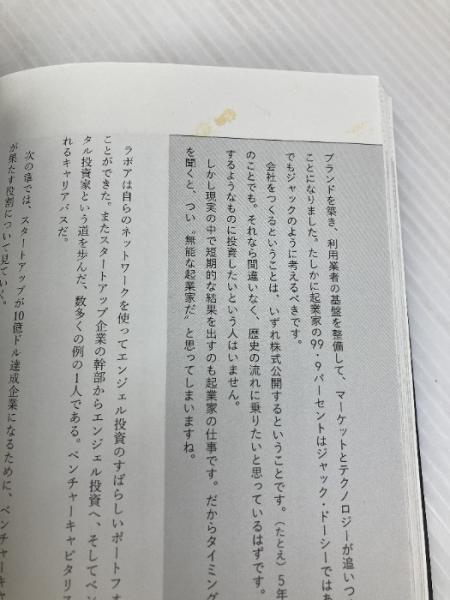 ブランドを築き、利用業者の基盤を整備して、マーケットとテクノロジーが追いつ
ことになりました。たしかに起業家の99・9パーセントはジャック・ドーシーではあ
でもジャックのように考えるべきです。
会社をつくるということは、いずれ株式公開するということです。（たとえ）5年
のことでも。それなら間違いなく、歴史の流れに乗りたいと思っているはずです。
するようなものに投資したいという人はいません。
しかし現実の中で短期的な結果を出すのも起業家の仕事です。だからタイミング
を聞くと、つい〝無能な起業家だ〟と思ってしまいますね。
ラボアは自らのネットワークを使ってエンジェル投資のすばらしいポートフォ
ことができた。またスタートアップ企業の幹部からエンジェル投資へ、そしてベン
タル投資家という道を歩んだ、数多くの例の1人である。ベンチャーキャピタリス
れるキャリアパスだ。
次の章では、スタートアップが10億ドル達成企業になるために、ベンチャーキャ
が果たす役割について見ていく。